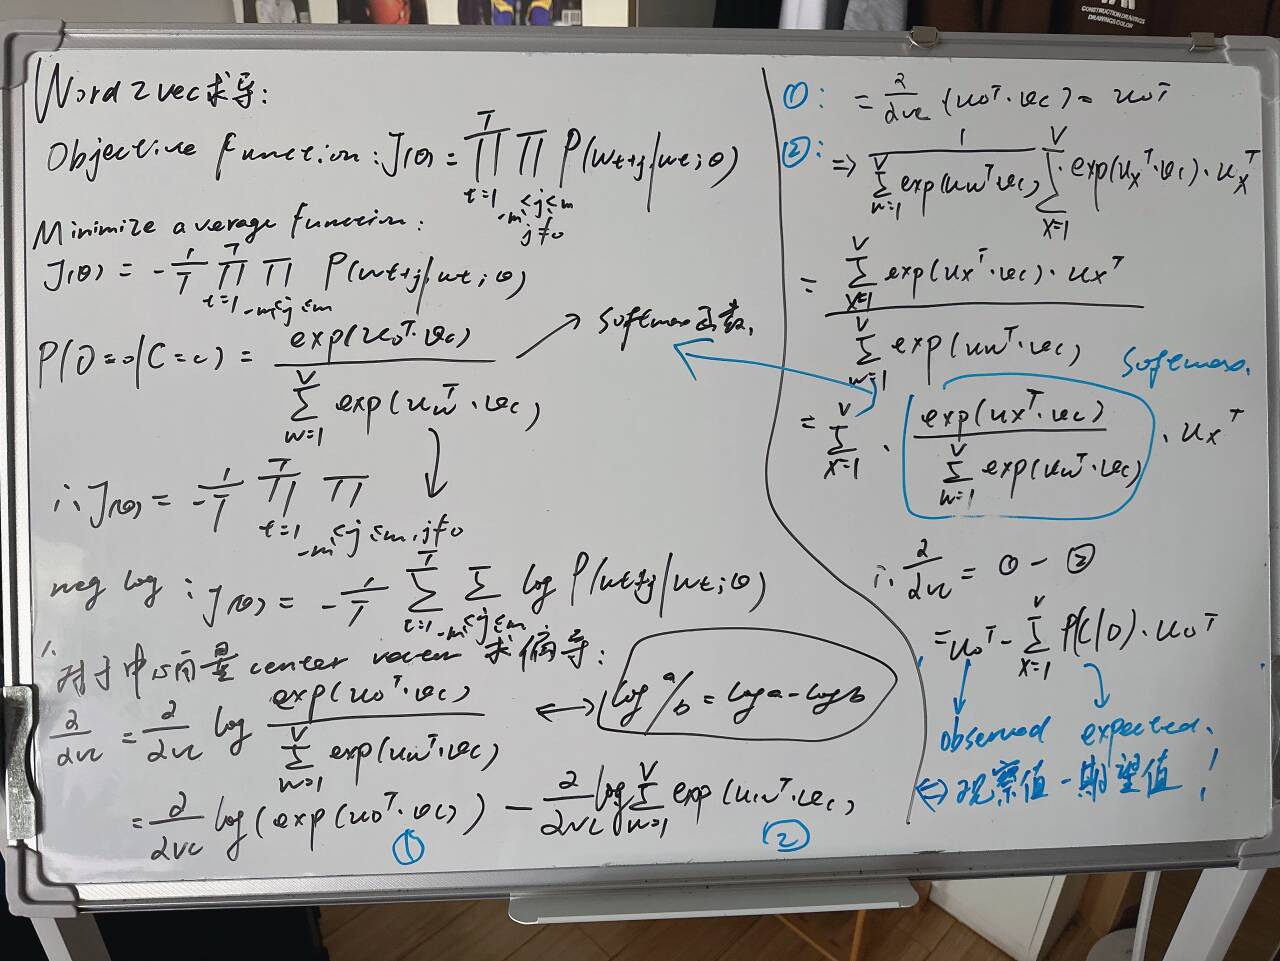 CONSTRUCTION DRAWINGS
DRAWINGS COLOR
Word2vec求导:
Objective function: J(θ) = ∏_{t=1}^{T} ∏_{-m≤j≤m, j≠0} P(w_{t+j}|w_t; θ)
Minimize average function:
J(θ) = -1/T ∏_{t=1}^{T} ∏_{-m≤j≤m} P(w_{t+j}|w_t; θ)
P(O=o|C=c) = exp(u_o^T·v_c) / Σ_{w=1}^{V} exp(u_w^T·v_c) → softmax函数.
∴ J(θ) = -1/T ∏_{t=1}^{T} ∏_{-m≤j≤m, j≠0}
neg log: J(θ) = -1/T Σ_{t=1}^{T} Σ_{-m≤j≤m} log P(w_{t+j}|w_t; θ)
1. 对于中心向量center vector 求偏导:
∂/∂v_c = ∂/∂v_c log exp(u_o^T·v_c) / Σ_{w=1}^{V} exp(u_w^T·v_c) ↔ log a/b = log a - log b
= ∂/∂v_c log(exp(u_o^T·v_c)) - ∂/∂v_c log Σ_{w=1}^{V} exp(u_w^T·v_c)
① ②
①: = ∂/∂v_c (u_o^T·v_c) = u_o^T
②: => 1 / Σ_{w=1}^{V} exp(u_w^T·v_c) Σ_{x=1}^{V} exp(u_x^T·v_c)·u_x^T
= Σ_{x=1}^{V} exp(u_x^T·v_c)·u_x^T / Σ_{w=1}^{V} exp(u_w^T·v_c)
softmax.
= Σ_{x=1}^{V} · exp(u_x^T·v_c) / Σ_{w=1}^{V} exp(u_w^T·v_c) · u_x^T
∴ ∂/∂v_c = ① - ②
= u_o^T - Σ_{x=1}^{V} P(C|O)·u_o^T
observed expected.
⇔ 观察值 - 期望值!